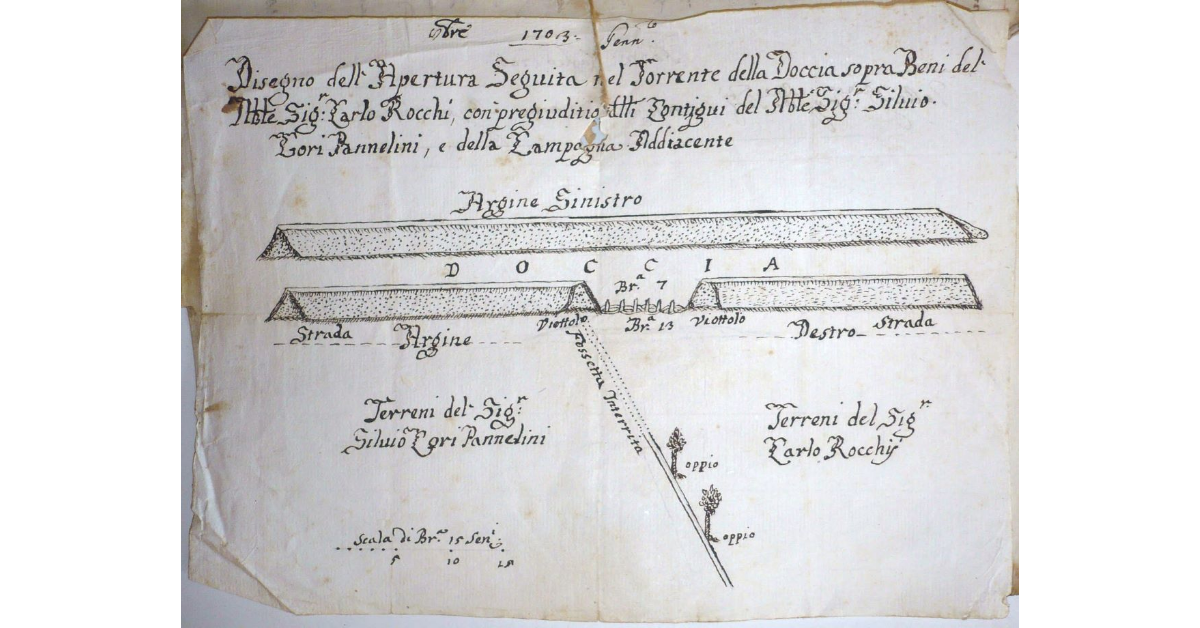 1703 Genn.º
Disegno dell' Apertura Seguita nel Torrente della Doccia sopra Beni del
Nble Sig.r Carlo Rocchi, con pregiuditio delli Contigui del Nble Sig.r Silvio
Gori Pannelini, e della Campagna Addiacente
Argine Sinistro
D O C C I A
Br.a 7
Viottolo Br.a 13 Viottolo
Strada Argine Destro Strada
Fossetta Interrita
Terreni del Sig.r
Silvio Gori Pannelini
Terreni del Sig.r
Carlo Rocchij
oppio
oppio
Scala di Br.a 15 Sen.i
5 10 15